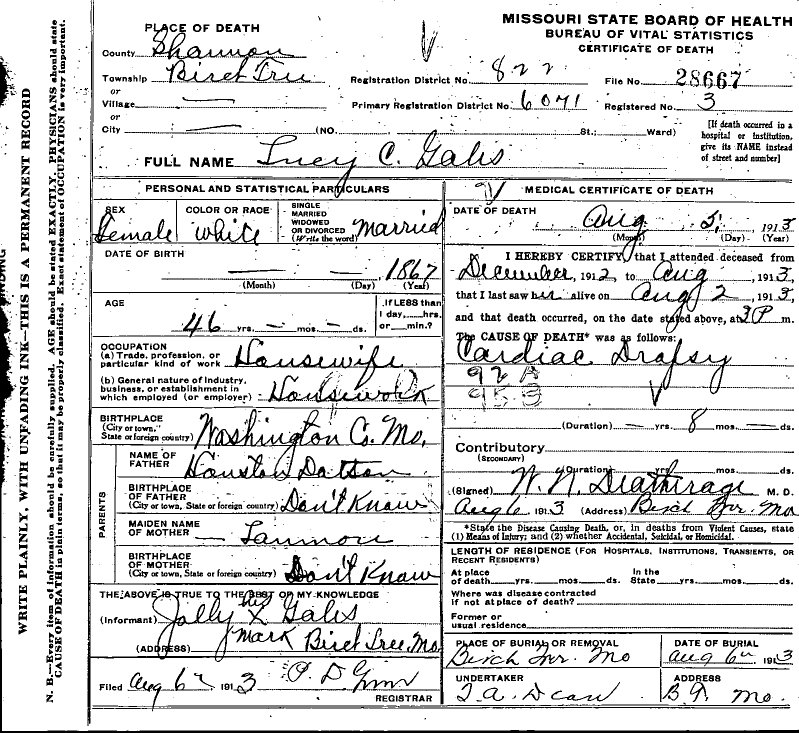 MISSOURI STATE BOARD OF HEALTH
BUREAU OF VITAL STATISTICS
CERTIFICATE OF DEATH
PLACE OF DEATH
County Shannon
Township Birch Tree
or
Village
or
City (NO. St.; Ward)
Registration District No. 822 File No. 28667
Primary Registration District No. 6071 Registered No. 3
[If death occurred in a
hospital or institution,
give its NAME instead
of street and number]
FULL NAME Lucy C. Gales
PERSONAL AND STATISTICAL PARTICULARS
SEX
Female
COLOR OR RACE
White
SINGLE
MARRIED
WIDOWED
OR DIVORCED
(Write the word)
Married
DATE OF BIRTH
1867
(Month) (Day) (Year)
AGE
46 yrs. — mos. — ds.
If LESS than
1 day, hrs.
or min.?
OCCUPATION
(a) Trade, profession, or
particular kind of work Housewife
(b) General nature of industry,
business, or establishment in
which employed (or employer) Housework
BIRTHPLACE
(City or town,
State or foreign country) Washington Co. Mo.
PARENTS
NAME OF
FATHER Houston Dotson
BIRTHPLACE
OF FATHER
(City or town, State or foreign country) Don't Know
MAIDEN NAME
OF MOTHER —
BIRTHPLACE
OF MOTHER
(City or town, State or foreign country) Don't Know
THE ABOVE IS TRUE TO THE BEST OF MY KNOWLEDGE
(Informant) Jolly his X Gales
mark
(ADDRESS) Birch Tree, Mo
Filed Aug 6th 1913
REGISTRAR
MEDICAL CERTIFICATE OF DEATH
DATE OF DEATH
Aug 5, 1913
(Month) (Day) (Year)
I HEREBY CERTIFY, that I attended deceased from
December, 1912 to Aug, 1913,
that I last saw her alive on Aug 2 1913,
and that death occurred, on the date stated above, at 3 P m.
The CAUSE OF DEATH* was as follows:
Cardiac Dropsy
92 A
95 B
(Duration) — yrs. 8 mos. — ds.
Contributory
(SECONDARY)
(Duration) yrs. mos. ds.
(Signed) W. N. Deatherage M. D.
Aug 6 1913 (Address) Birch Tree. Mo
*State the Disease Causing Death, or, in deaths from Violent Causes, state
(1) Means of Injury; and (2) whether Accidental, Suicidal, or Homicidal.
LENGTH OF RESIDENCE (FOR HOSPITALS, INSTITUTIONS, TRANSIENTS, OR
RECENT RESIDENTS)
At place
of death yrs. mos. ds.
In the
State yrs. mos. ds.
Where was disease contracted
if not at place of death?
Former or
usual residence
PLACE OF BURIAL OR REMOVAL
Birch Tree. Mo
DATE OF BURIAL
Aug 6th 1913
UNDERTAKER
T. A. Dean
ADDRESS
B.T. Mo.
WRITE PLAINLY, WITH UNFADING INK—THIS IS A PERMANENT RECORD
N. B.—Every item of information should be carefully supplied. AGE should be stated EXACTLY. PHYSICIANS should state
CAUSE OF DEATH in plain terms, so that it may be properly classified. Exact statement of OCCUPATION is very important.